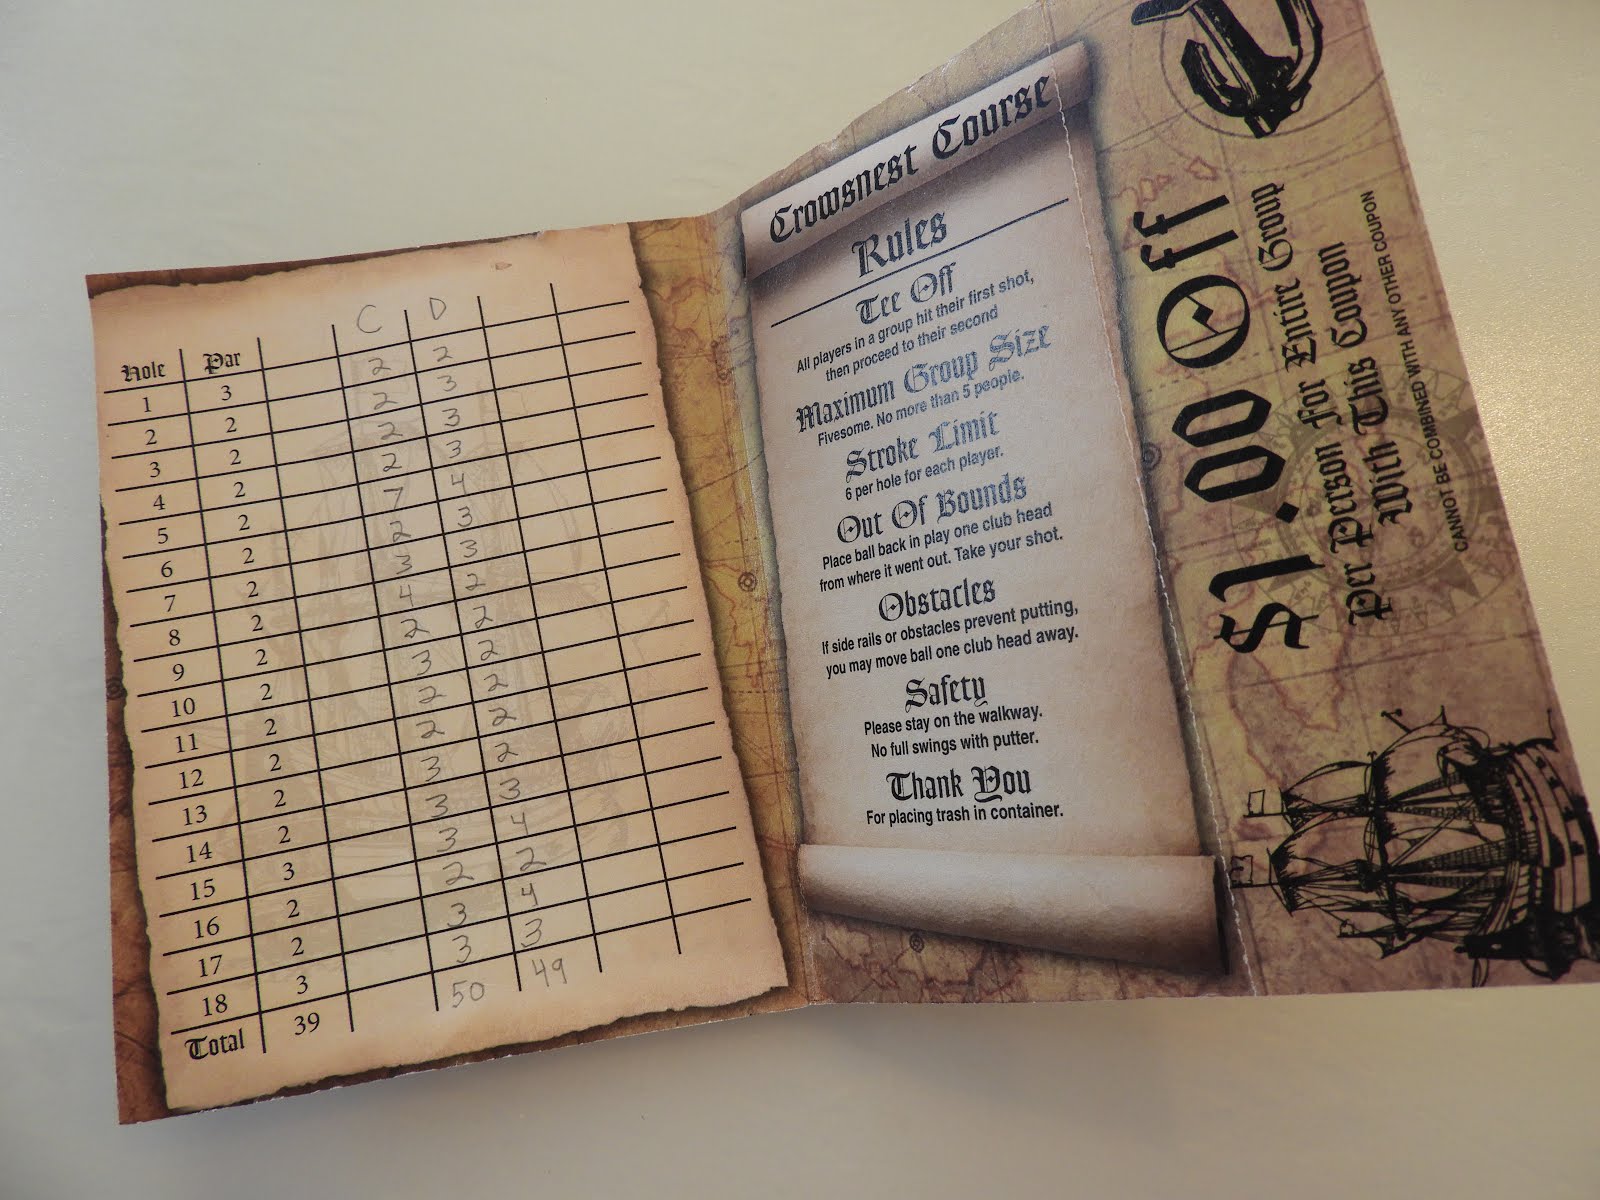 C D
Hole Par
1 3 2 2
2 2 2 3
3 2 2 3
4 2 2 3
5 2 7 4
6 2 2 3
7 2 3 3
8 2 4 2
9 2 2 2
10 2 3 2
11 2 2 2
12 2 2 2
13 2 3 2
14 2 3 3
15 3 3 4
16 2 2 2
17 2 3 4
18 3 3 3
Total 39 50 49
Crowsnest Course
Rules
Tee Off
All players in a group hit their first shot,
then proceed to their second
Maximum Group Size
Fivesome. No more than 5 people.
Stroke Limit
6 per hole for each player.
Out Of Bounds
Place ball back in play one club head
from where it went out. Take your shot.
Obstacles
If side rails or obstacles prevent putting,
you may move ball one club head away.
Safety
Please stay on the walkway.
No full swings with putter.
Thank You
For placing trash in container.
$1.00 Off
Per Person For Entire Group
With This Coupon
CANNOT BE COMBINED WITH ANY OTHER COUPON